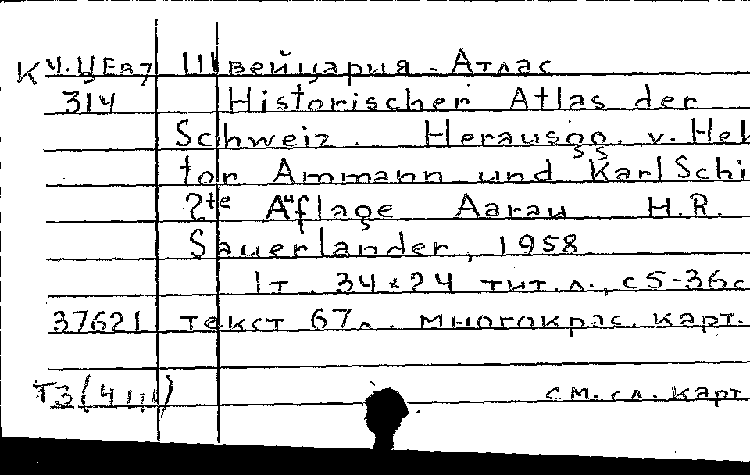 К Ч.ЦЕв7 Швейцария - Атлас
314 Historischer Atlas der
Schweiz. Herausgg. v. Hek
tor Ammann und Karl Schi
2te Auflage Aarau H.R.
Sauerlander, 1958
1т. 34×24 тит.л., с 5-36с
37621 текст 67л. многокрас. карт.
Т3(4Ш) см. сл. карт